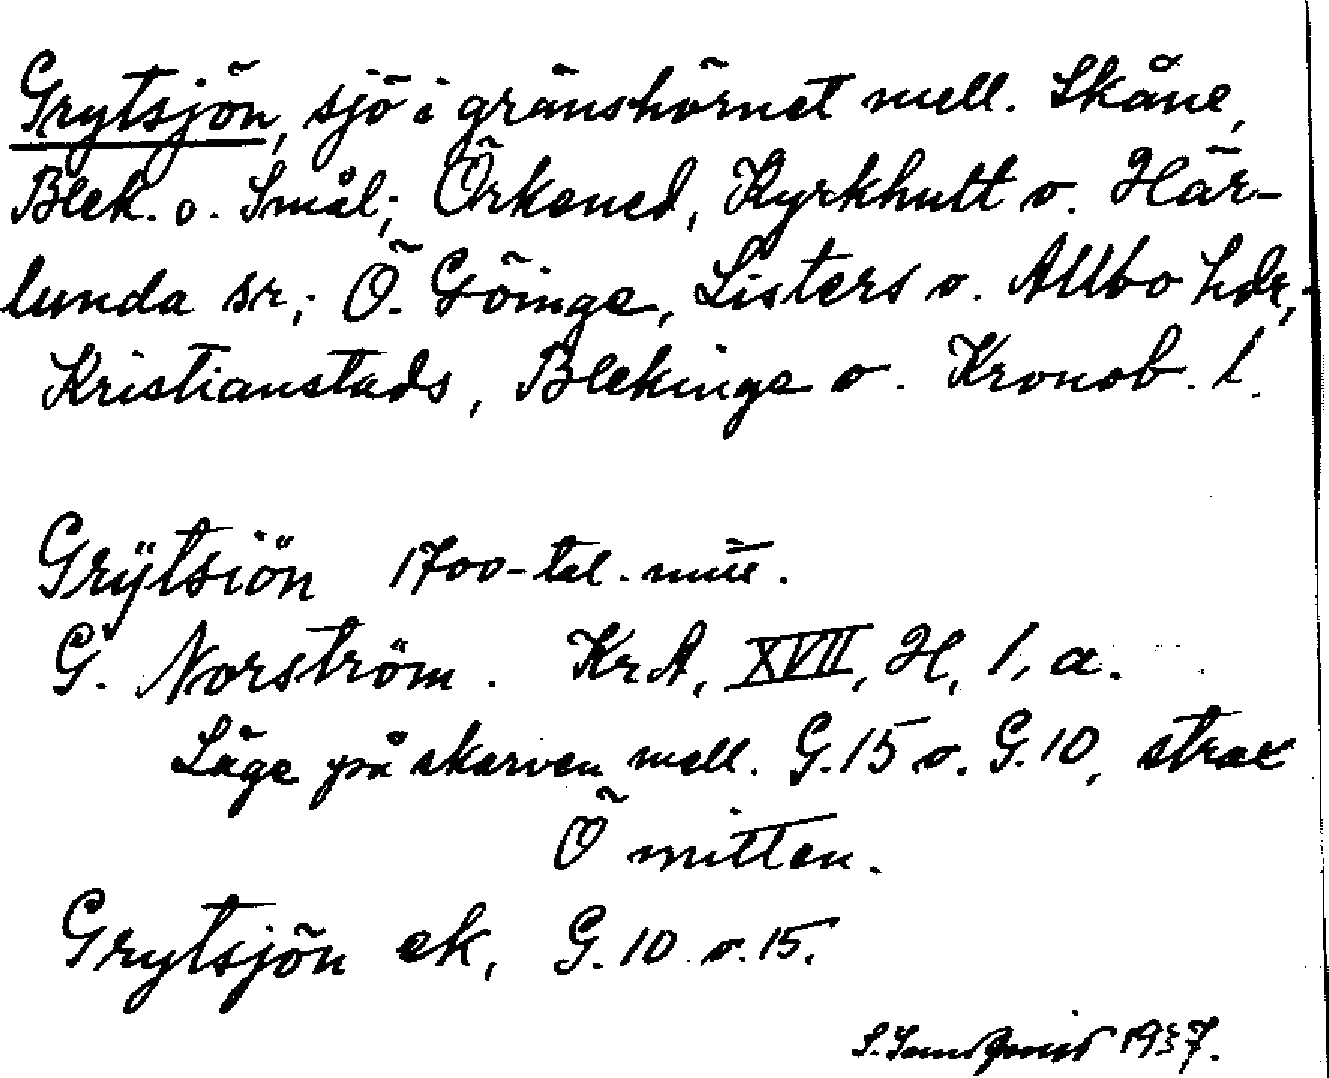 Grytsjön, sjö i gränshörnet mell. Skåne,
Blek. o. Smål; Örkened, Kyrkhult o. Här-
lunda sr; Ö. Göinge, Listers o. Allbo hdr,
Kristianstads, Blekinge o. Kronob. l.
Grÿtsiön 1700-tal.
G. Norström. KrA, XVII, H, 1, a.
Läge på skarven mell. G.15 o. G.10, strax
Ö mitten.
Grytsjön ek, G. 10 o. 15.
1937.